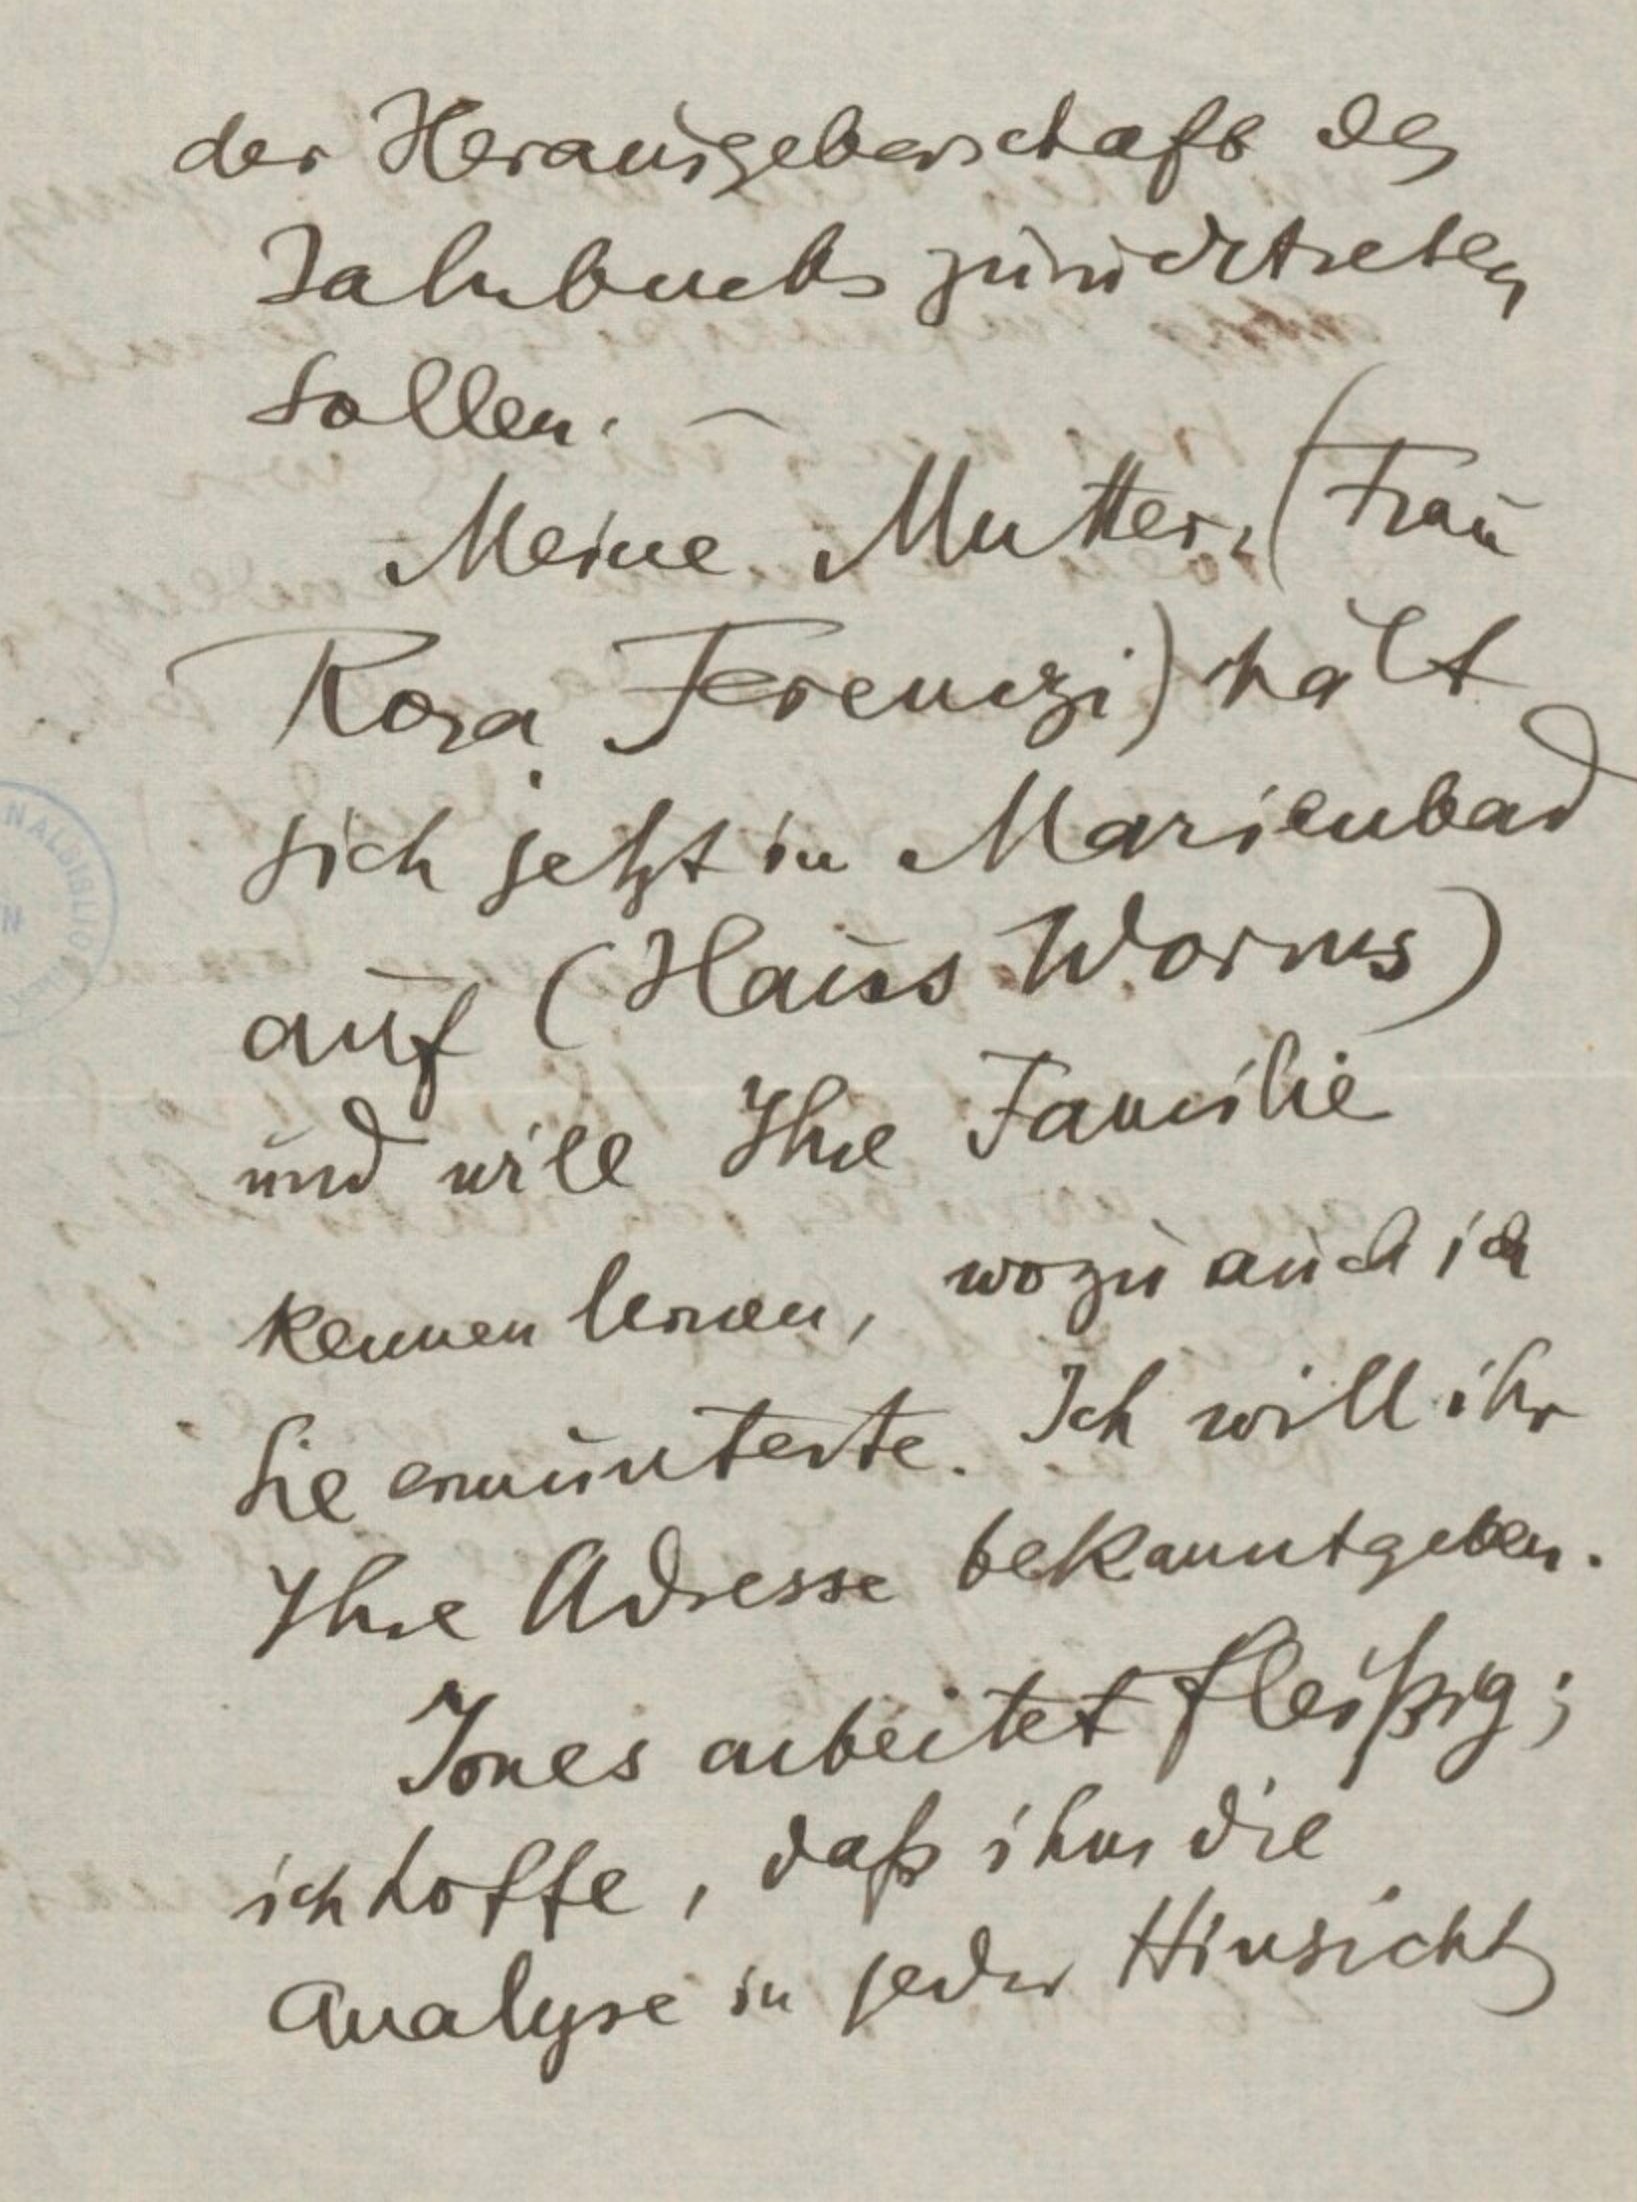 der Herausgeberschaft des
Jahrbuchs zurücktreten
sollen. —
Meine Mutter, (Frau
Rosa Ferenczi) hält
sich jetzt in Marienbad
auf (Haus Worms)
und will Ihre Familie
kennen lernen, wozu auch ich
sie ermunterte. Ich will ihr
Ihre Adresse bekanntgeben.
Jones arbeitet fleißig;
ich hoffe, daß ihm die
Analyse in jeder Hinsicht